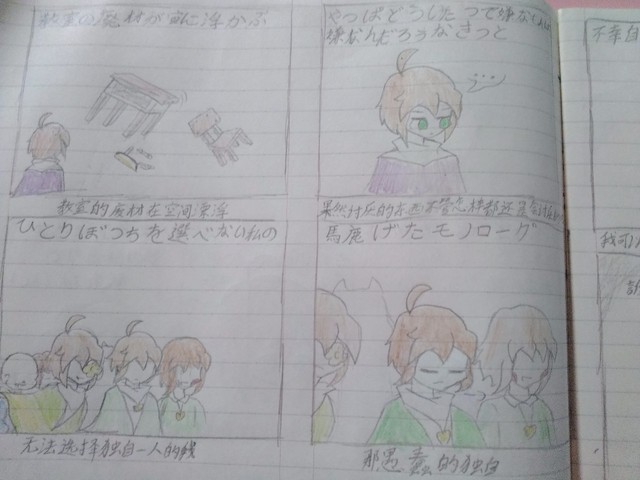 教室の廃材が宙に浮かぶ
やっぱどうしたって嫌な
嫌なんだろうなきっと
教室的废材在空间漂浮
果然讨厌的东西不管怎样都还是会讨厌
ひとりぼっちを選べない私の
馬鹿げたモノローグ
无法选择独自一人的我
那愚蠢的独白
不幸自